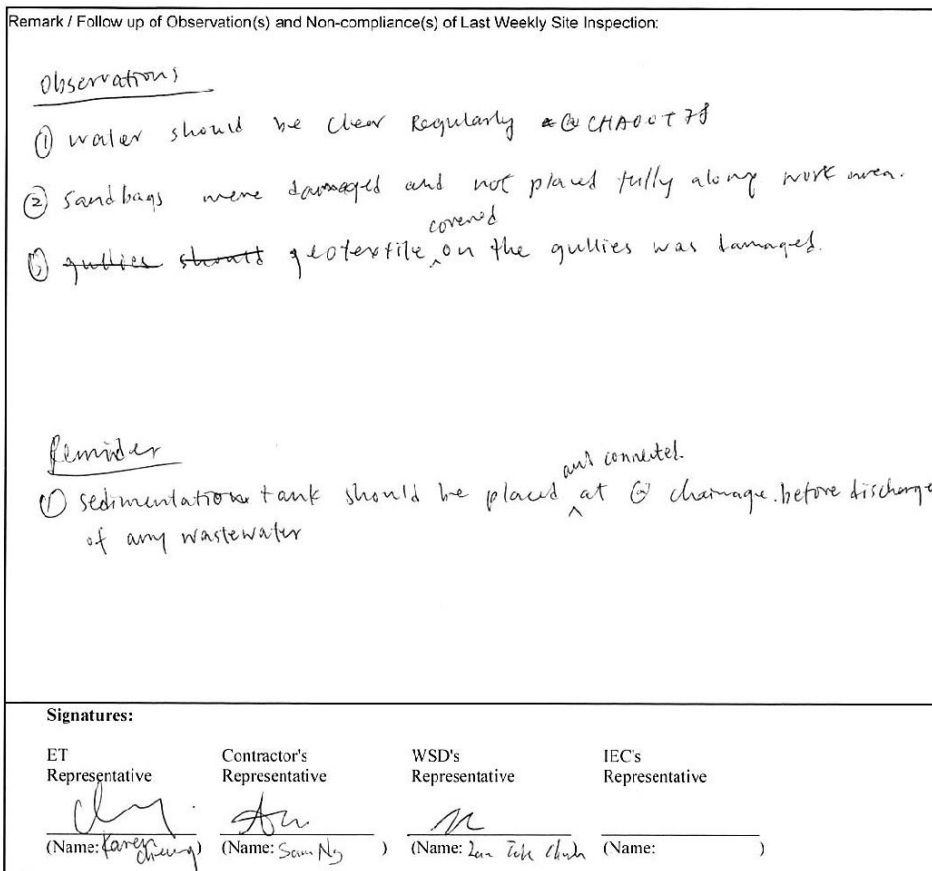 Remark / Follow up of Observation(s) and Non-compliance(s) of Last Weekly Site Inspection:
Observations
① water should be clear Regularly @ CHA00+78
② sandbags were damaged and not placed fully along work area.
③ gullies should geotextile covered on the gullies was damaged.
Reminder
① sedimentation tank should be placed and connected. at @ chainage. before discharge
of any wastewater
Signatures:
ET Contractor's WSD's IEC's
Representative Representative Representative Representative
(Name: Karen Cheung) (Name: Sam Ng ) (Name: (Name: )